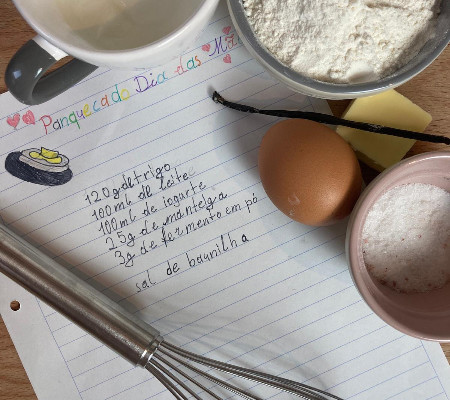 Panquecado Dia das Mã
120g de trigo
100ml de leite
100ml de iogurte
25g de manteiga
3g de fermento em pó
sal de baunilha